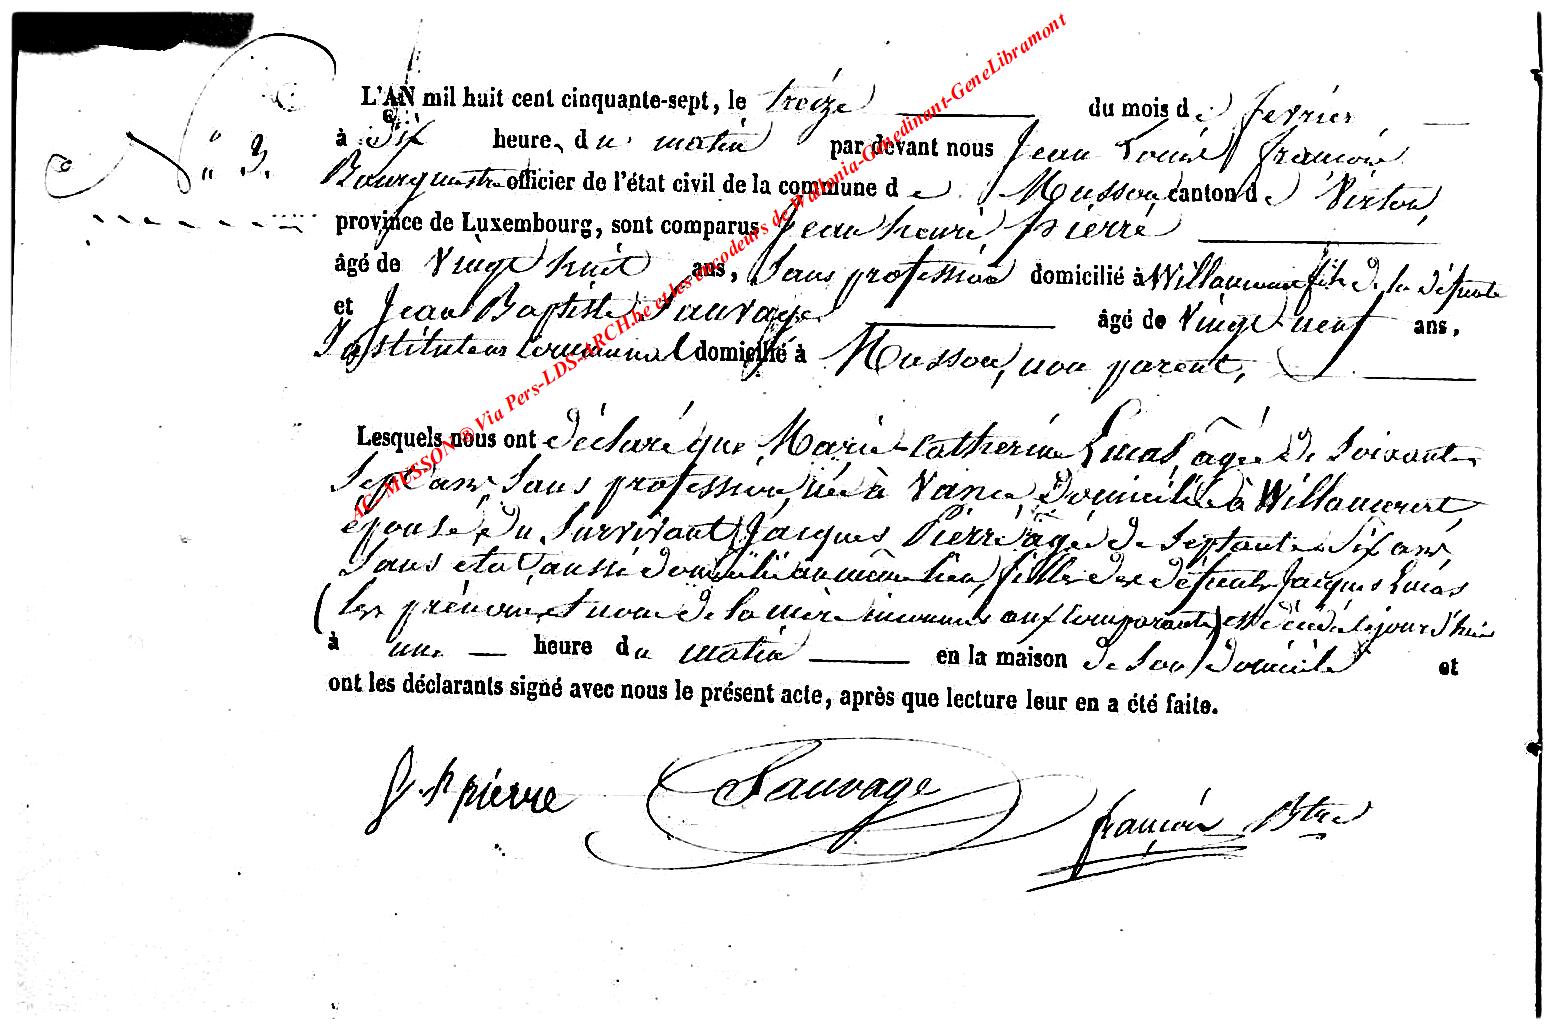 N° 3.
L'AN mil huit cent cinquante-sept, le treize du mois de février
à dix heure, du matin par devant nous Jean Louis françois
Bourgmestre officier de l'état civil de la commune de Musson canton de Virton,
province de Luxembourg, sont comparus Jean henri pierre
âgé de Vingt huit ans, Sans profession domicilié à Willancourt fils de la défunte
et Jean Baptiste Sauvage âgé de Vingt neuf ans,
Instituteur Communal domicilié à Musson, non parent,
Lesquels nous ont déclaré que Marie Catherine Lucas, âgée de soixante
Sept ans, Sans profession, née à Vance, Domiciliée à Willancourt,
épouse du Survivant Jacques Pierre âgé de Septante Six ans
Sans état aussi domicilié au même lieu, fille des défunts Jacques Lucas
(les prénoms et nom de la mère inconnus aux Comparants) est décédée le jour d'hui
à une heure du matin en la maison de Son domicile et
ont les déclarants signé avec nous le présent acte, après que lecture leur en a été faite.
J. h pierre Sauvage françois Btre
AC-MUSSON ® Via Pers-LDS-ARCH.be et les encodeurs de Wallonia-Genedinant-GeneLibramont